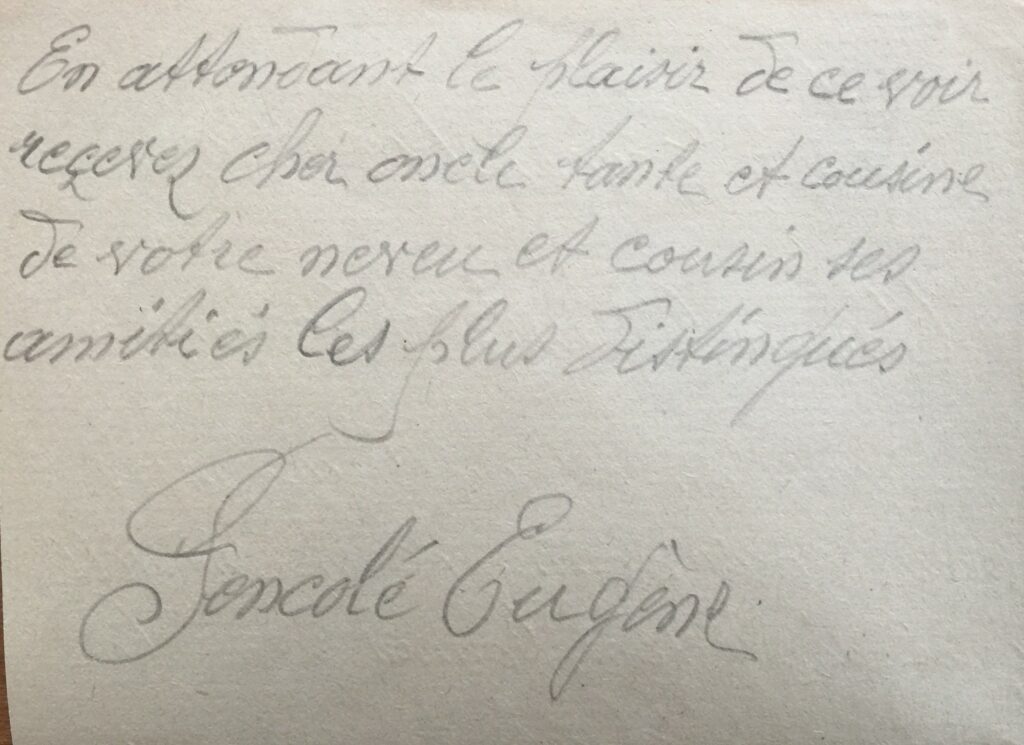 En attendant le plaisir de ce voir
reçevez cher oncle tante et cousine
de votre neveu et cousin ses
amitiés les plus distingués
Eugène